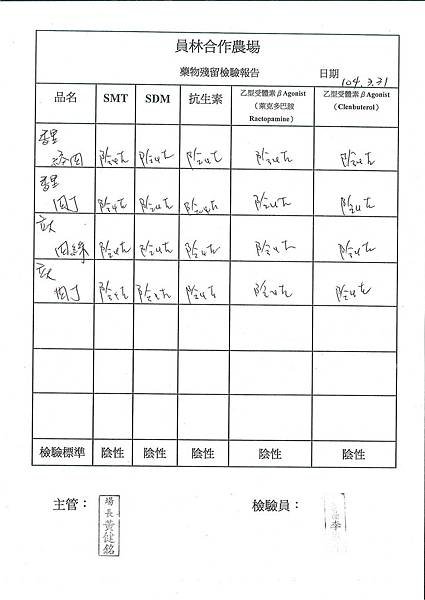 員林合作農場
藥物殘留檢驗報告 日期 104.3.31
品名 SMT SDM 抗生素 乙型受體素βAgonist（萊克多巴胺 Ractopamine） 乙型受體素βAgonist（Clenbuterol）
陰性 陰性 陰性 陰性 陰性
肉丁 陰性 陰性 陰性 陰性 陰性
肉絲 陰性 陰性 陰性 陰性 陰性
肉丁 陰性 陰性 陰性 陰性 陰性
檢驗標準 陰性 陰性 陰性 陰性 陰性
主管： 場長黃健銘 檢驗員： 李